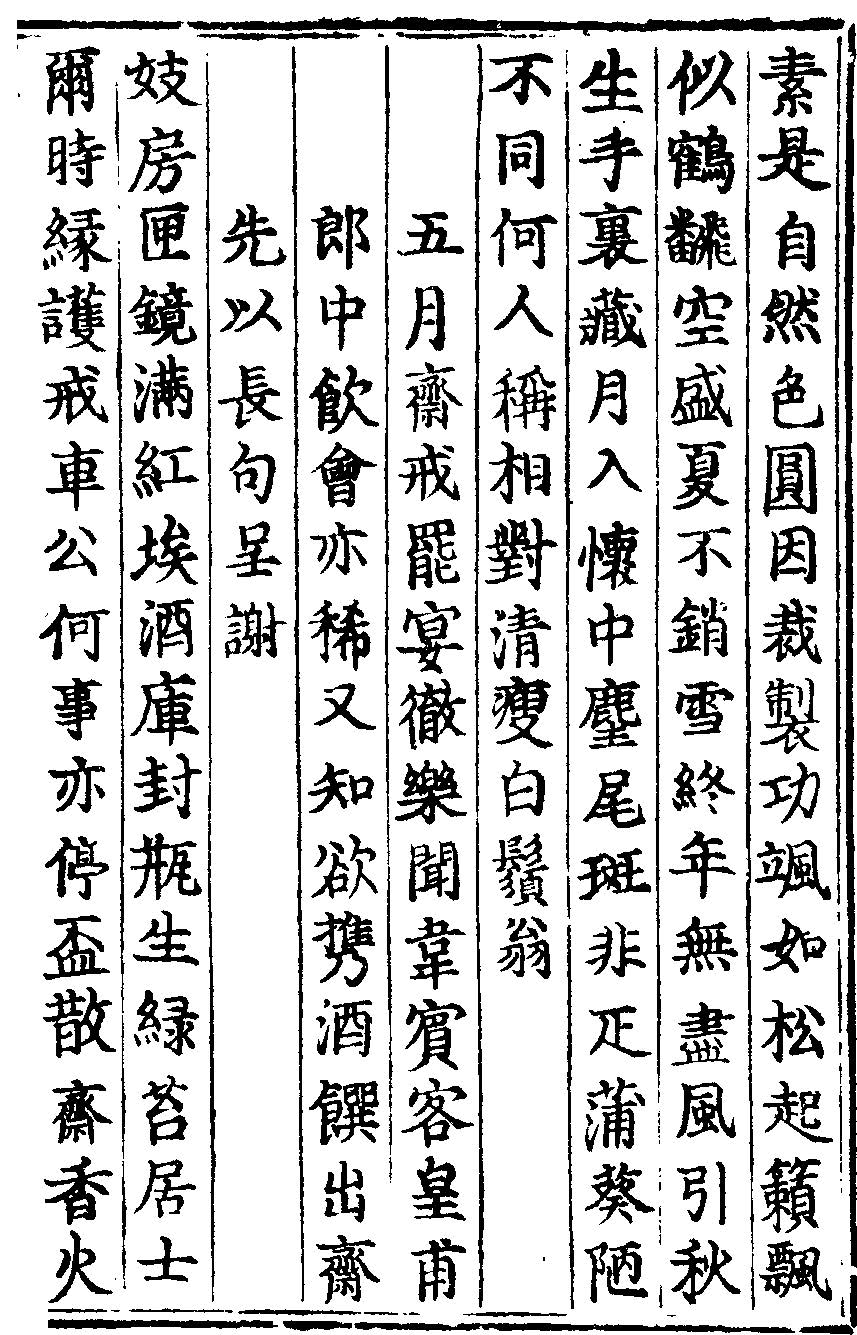 素是自然色圓因裁製功颯如松起籟飄
似鶴飜空盛夏不銷雪終年無盡風引秋
生手裏藏月入懷中麈尾斑非疋蒲葵陋
不同何人稱相對清瘦白鬚翁
五月齋戒罷宴徹樂聞韋賓客皇甫
郎中飲會亦稀又知欲携酒饌出齋
先以長句呈謝
妓房匣鏡滿紅埃酒庫封瓶生緑苔居士
爾時縁護戒車公何事亦停盃散齋香火